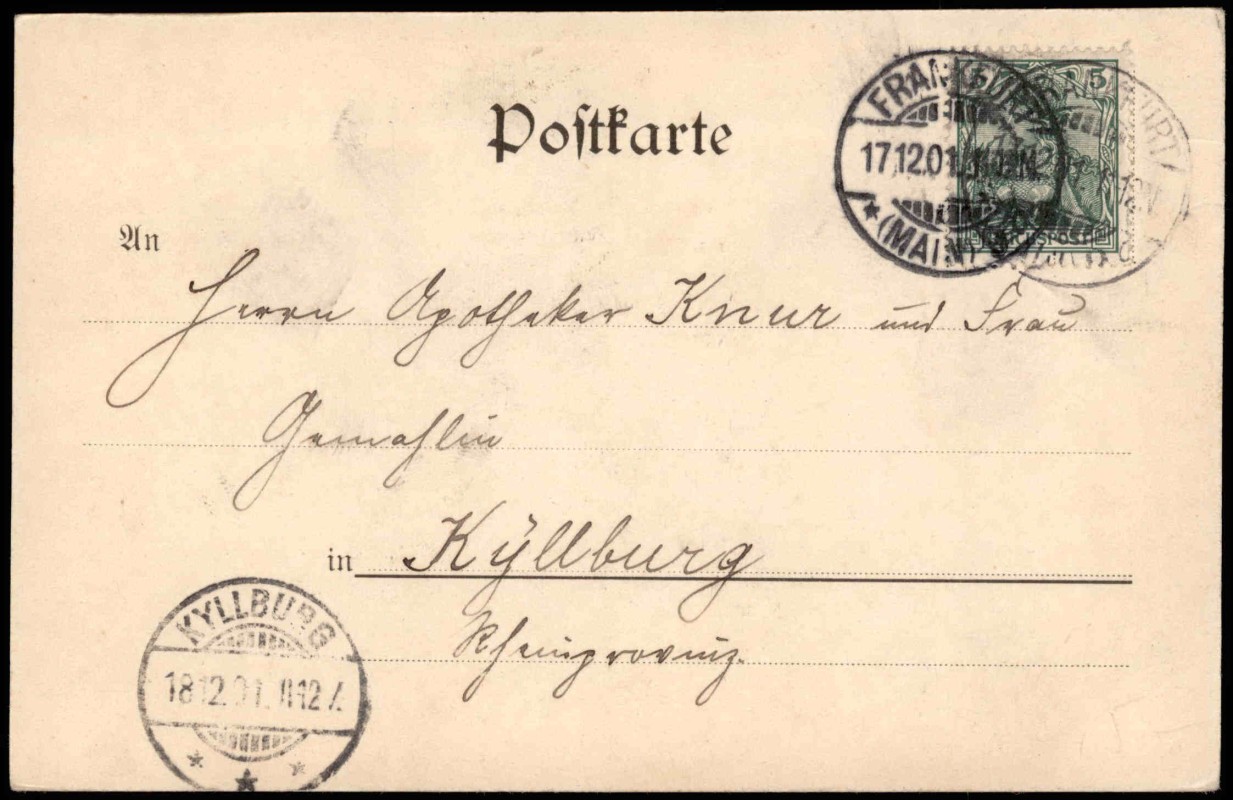 Postkarte
5
FRANKFURT
17.12.01.
* (MAIN)
REICHSPOST
An
Herrn Apotheker Knur und Frau
Gemahlin
in Kÿllburg
Rheinprovinz.
KYLLBURG
18.12.01. 11-12